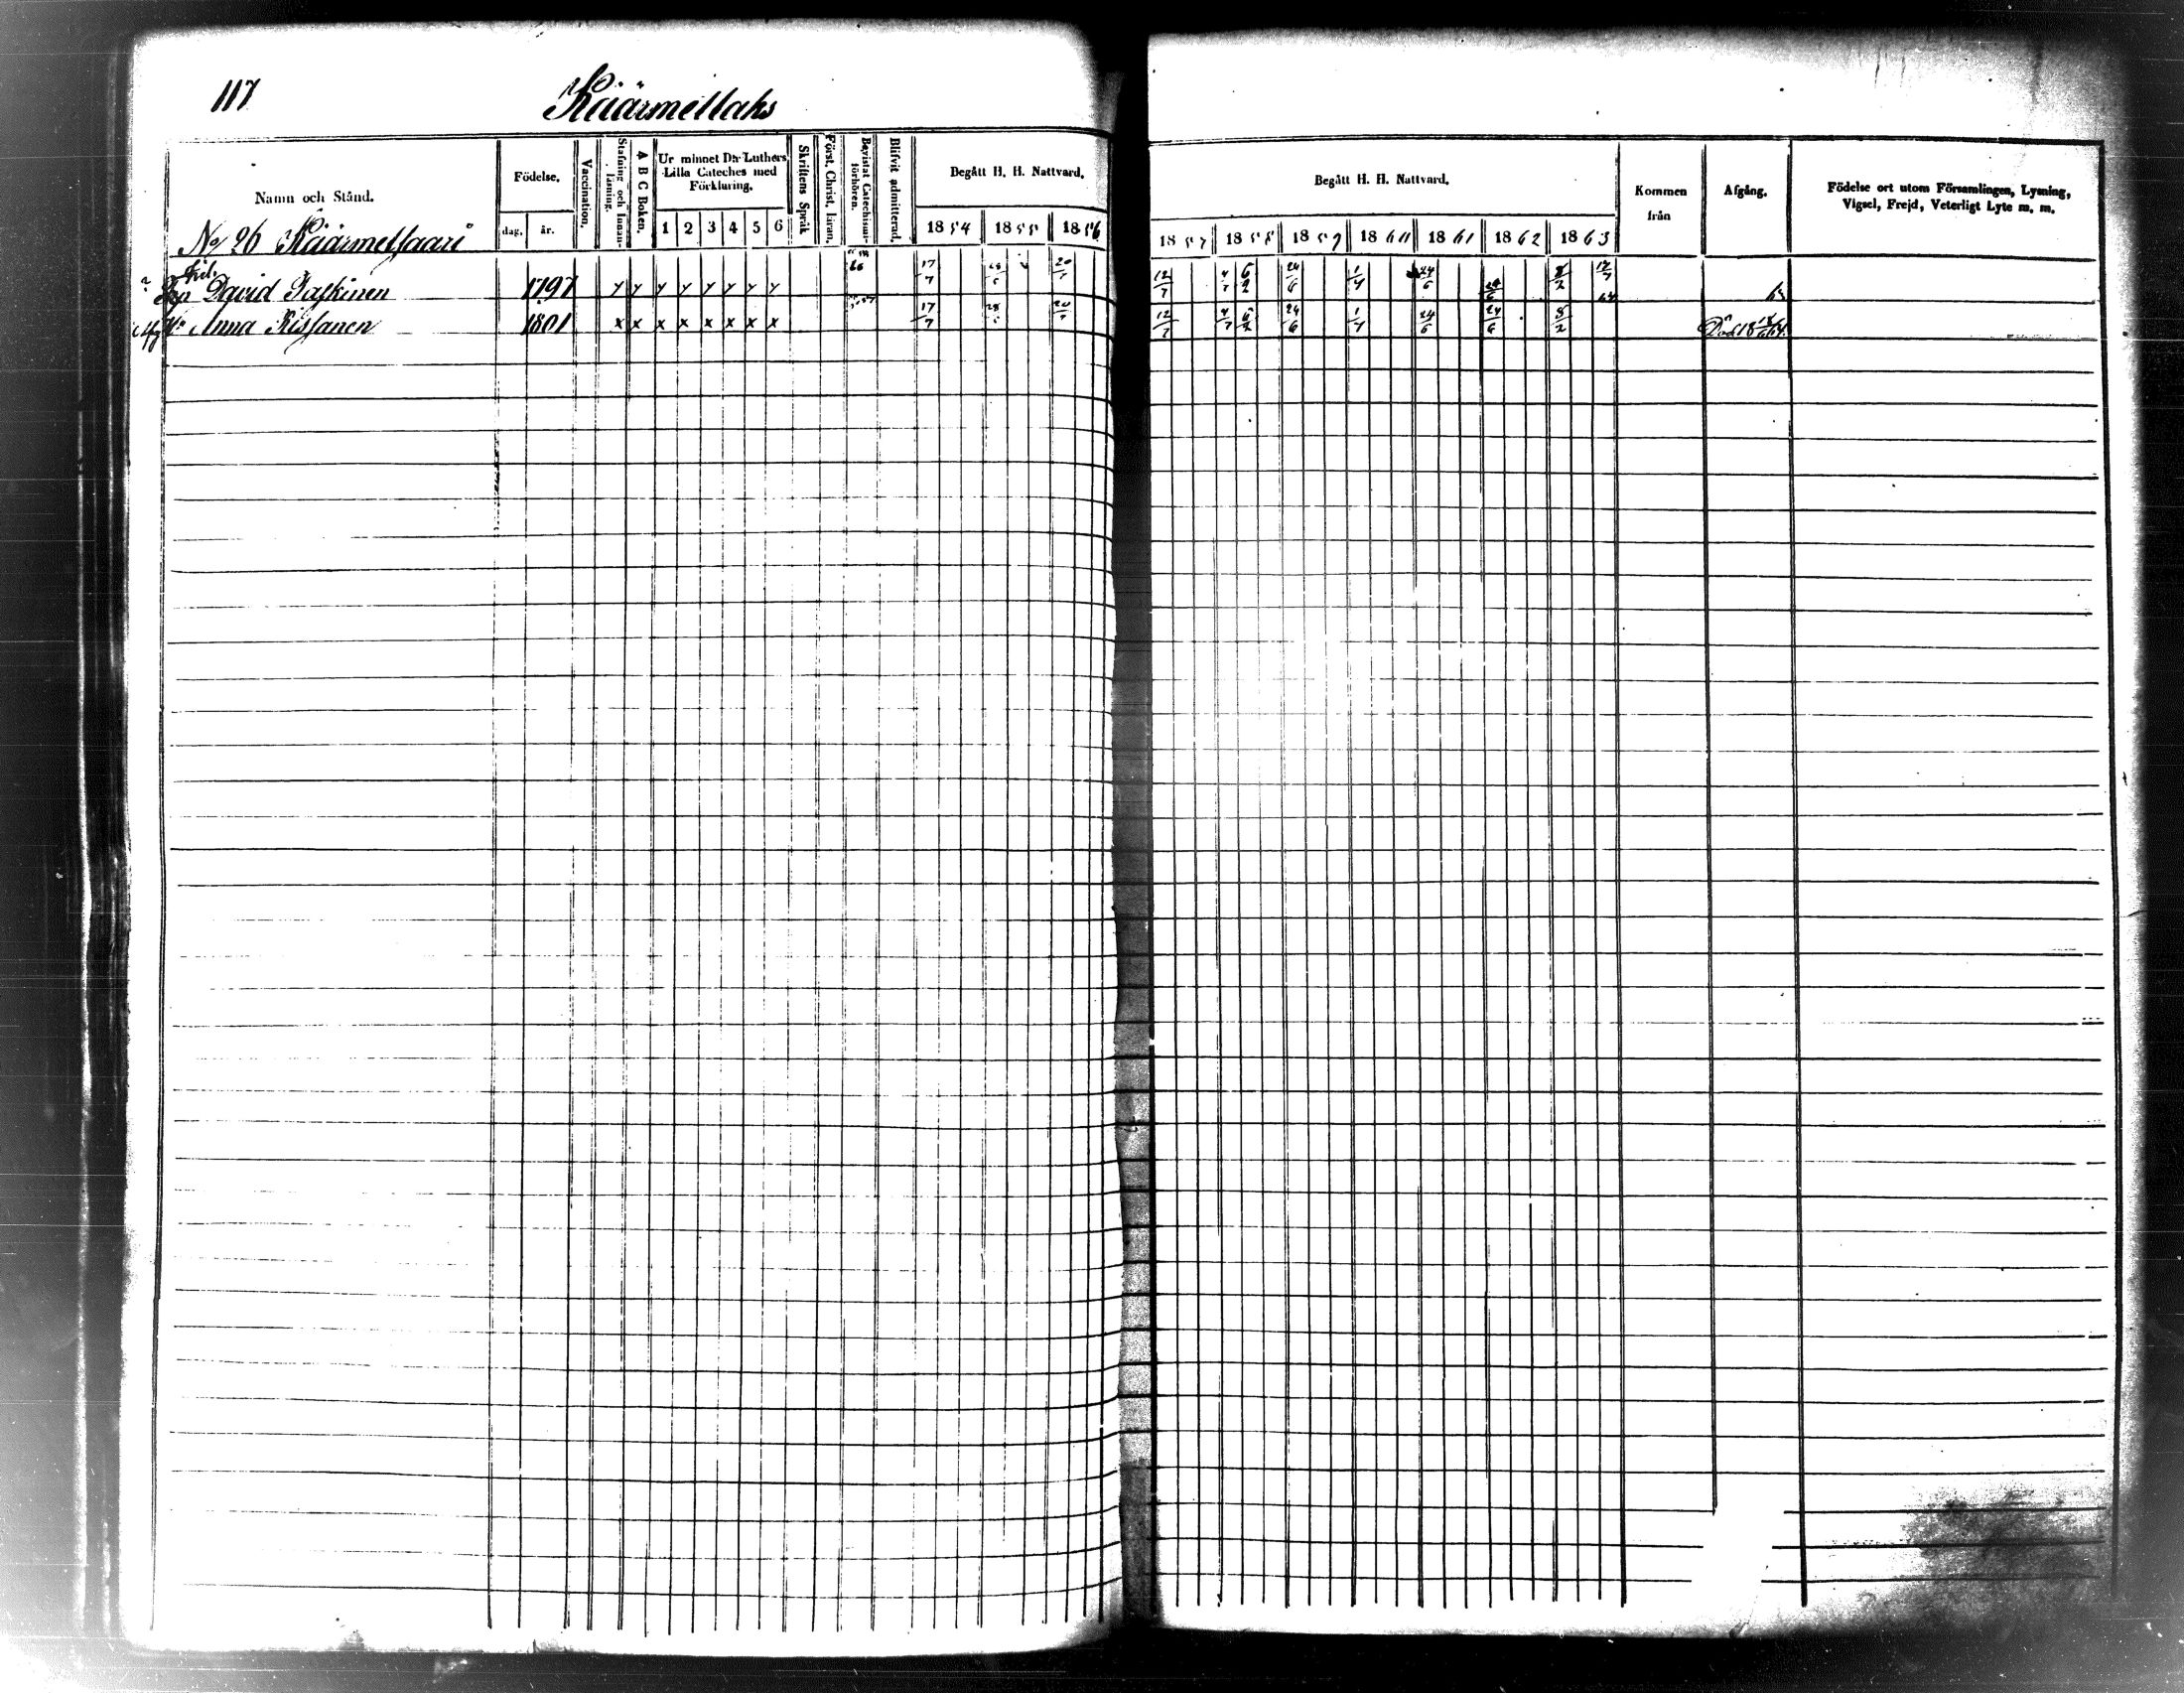 117
Käärmellaks
Namn och Stånd.
Födelse.
dag. år.
Vaccination.
Stafning och Innanläsning.
A B C Boken.
Ur minnet D:r Luthers Lilla Cateches med Förklaring.
1 2 3 4 5 6
Skriftens Språk
Först. Christ. läran.
Bevistat Catechismiförhören.
Blifvit admitterad.
Begått H. H. Nattvard.
1854 1855 1856
Begått H. H. Nattvard.
1857 1858 1859 1860 1861 1862 1863
Kommen från
Afgång.
Födelse ort utom Församlingen, Lysning, Vigsel, Frejd, Veterligt Lyte m. m.
No 26 Käärmelsaari
David Paskinen 1797 17/7 20/7 12/7 4/7 6/2 24/6 1/7 24/6 24/6 8/2 12/7
Anna Rissanen 1801 x x x x x x x x 17/7 28 20/7 12/7 4/7 6/2 24/6 1/7 24/6 24/6 8/2 Död